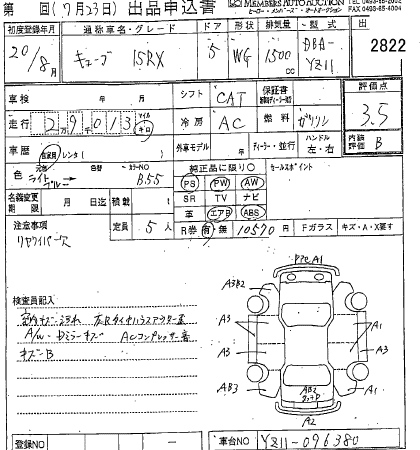 第 回 (7月23日) 出品申込書 MEMBERS AUTO AUCTION
FAX 0493-85-4004
初度登録年月 通称車名・グレード ドア 形状 排気量 型式 出
20/8月 キューブ 15RX 5 WG 1500cc DBA-YZ11 2822
車検 年 月 シフト CAT 保証書 評価点
走行 2万9013 マイル キロ 冷房 AC 燃料 ガソリン 3.5
車歴 自家用 レンタ 外車モデル ディーラー・並行 ハンドル 左・右 内装 B
色 元色 ライトブルー 色替 カラーNO B55 純正品に限り○ セールスポイント
PS PW AW
名義変更期限 月 日迄 積載 t SR TV ナビ
定員 5人 革 エアB ABS
注意事項 R券 有 無 10570円 Fガラス キズ・A・X要す
リヤワイパー穴
検査員記入
PPC A1
A3B2
A/W・Dミラーキズ ACコンプレッサー音
キズB
A3 A1
A3 A3
AB3 AB2 A1
A2
登録NO 車台NO YZ11-096380